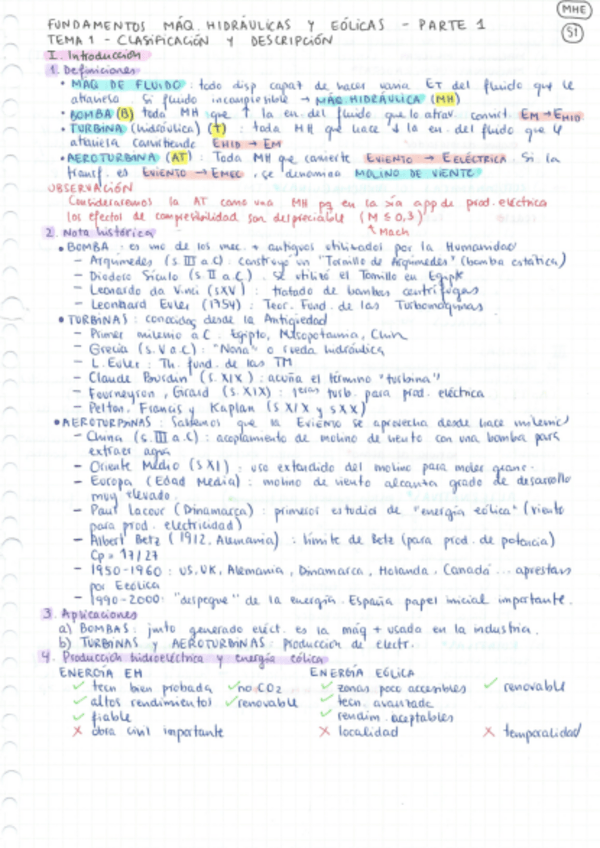 MHE
S1
FUNDAMENTOS MÁQ. HIDRÁULICAS Y EÓLICAS - PARTE 1
TEMA 1 - CLASIFICACIÓN Y DESCRIPCIÓN
I. Introducción
1. Definiciones
• MÁQ DE FLUIDO: todo disp capaz de hacer varia ET del fluido que le
atraviesa. Si fluido incompresible → MÁQ. HIDRÁULICA (MH)
• BOMBA (B) toda MH que ↑ la en. del fluido que lo atrav. convirt. EM → EHID
• TURBINA (hidráulica) (T) : toda MH que hace ↓ la en. del fluido que la
atraviesa convirtiendo EHID → EM
• AEROTURBINA (AT): Toda MH que convierte EVIENTO → EELÉCTRICA. Si la
transf. es EVIENTO → EMEC, se denomina MOLINO DE VIENTO
OBSERVACIÓN
Consideraremos la AT como una MH pq en la app de prod. eléctrica
los efectos de compresibilidad son despreciables (M ≤ 0,3)
↑ Mach
2. Nota histórica
• BOMBA : es uno de los mec. + antiguos utilizados por la Humanidad
- Arquímedes (s. III a.C) : construyó un "Tornillo de Arquímedes" (bomba estática)
- Diodoro Sículo (s. II a.C.). Se utilizó el Tornillo en Egipto
- Leonardo da Vinci (s.XV) : tratado de bombas centrífugas
- Leonhard Euler (1754) : Teor. Fund. de las Turbomáquinas
• TURBINAS : conocidas desde la Antigüedad
- Primer milenio a.C. Egipto, Mesopotamia, China
- Grecia (s. V a.C) : "Noria" o rueda hidráulica
- L. Euler : Th. fund. de las TM
- Claude Bourdin (s. XIX) : acuña el término "turbina"
- Fourneyson, Girard (s. XIX) : 1eras turb. para prod. eléctrica
- Pelton, Francis y Kaplan (s XIX y s XX)
• AEROTURBINAS : Sabemos que la EVIENTO se aprovecha desde hace milenios
- China (s. III a.C) : acoplamiento de molino de viento con una bomba para
extraer agua
- Oriente Medio (s XI) : uso extendido del molino para moler grano.
- Europa (Edad Media) : molino de viento alcanza grado de desarrollo
muy elevado
- Paul Lacour (Dinamarca) : primeros estudios de "energía eólica" (viento
para prod. electricidad)
- Albert Betz (1912, Alemania) : límite de Betz (para prod. de potencia)
Cp = 17/27
- 1950-1960 : US, UK, Alemania, Dinamarca, Holanda, Canadá ...
por Eeólica
- 1990-2000: "despegue" de la energía. España papel inicial importante.
3. Aplicaciones
a) BOMBAS : junto generado eléct. es la máq + usada en la industria.
b) TURBINAS y AEROTURBINAS : Producción de electr.
4. Producción hidroeléctrica y energía eólica
ENERGÍA EH
✓ tecn bien probada ✓ no CO2
✓ altos rendimientos ✓ renovable
✓ fiable
✗ obra civil importante
ENERGÍA EÓLICA
✓ zonas poco accesibles ✓ renovable
✓ tecn. avanzada
✓ rendim. aceptables
✗ localidad ✗ temporalidad